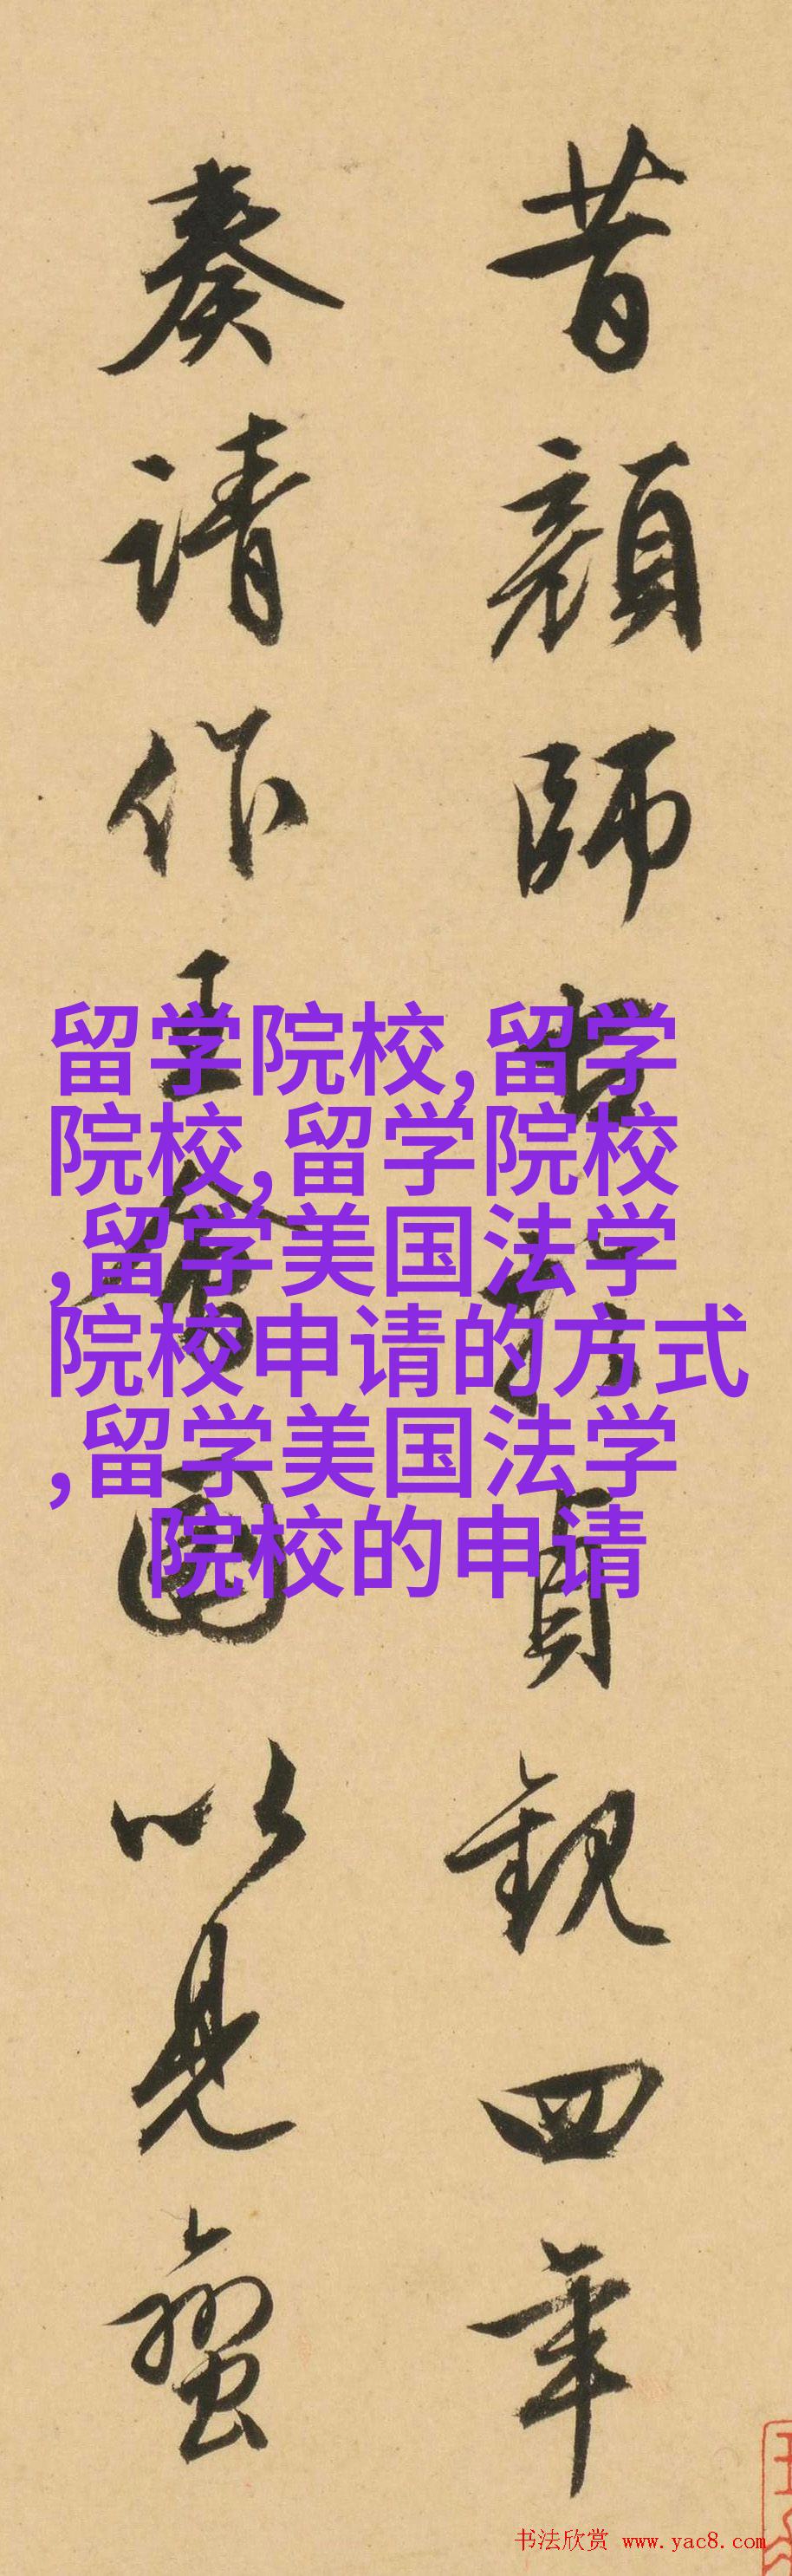 昔顏師古於貞觀四年
奏請作王會圖以見蠻
留学院校,留学
院校,留学院校
,留学美国法学
院校申请的方式
,留学美国法学
院校的申请
书法欣赏 www.yac8.com